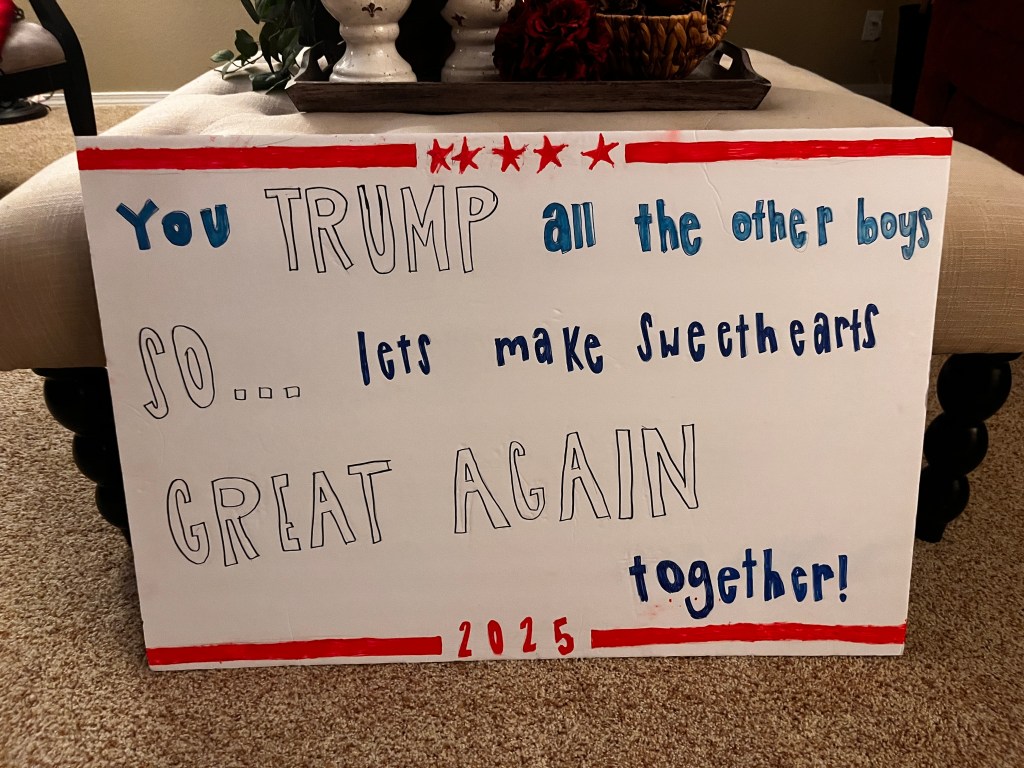 You TRUMP all the other boys
SO... lets make sweethearts
GREAT AGAIN
together!
2025